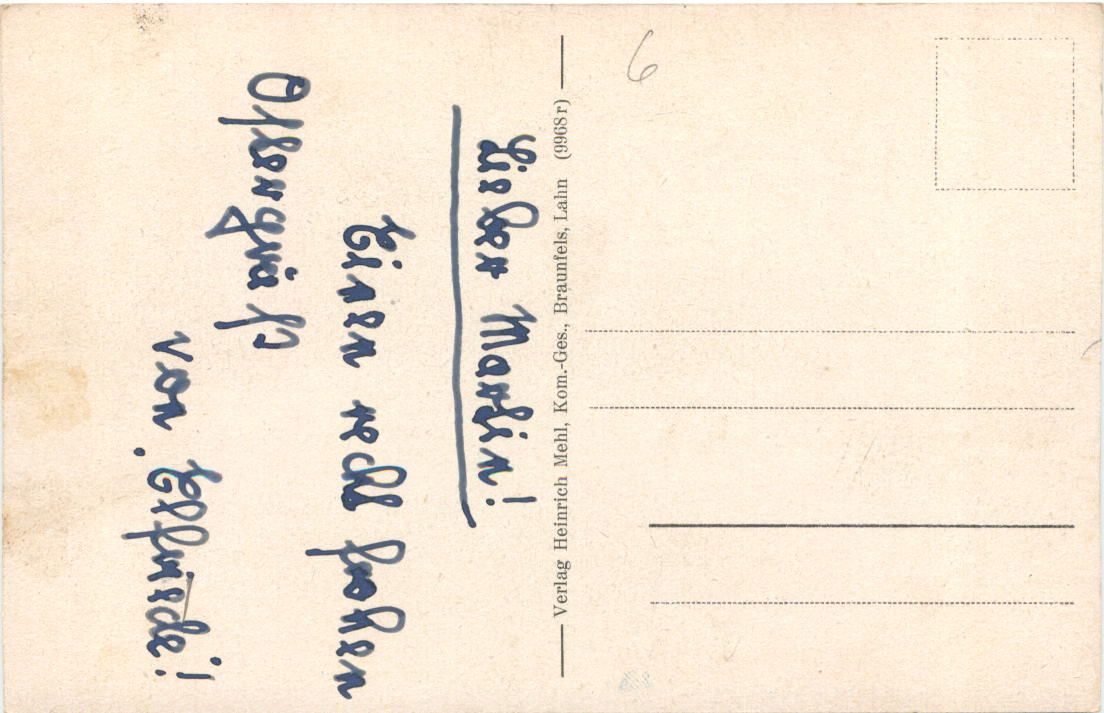 Lieber Martin!
Einen recht frohen
Ostergruß
von Elfriede!
Verlag Heinrich Mehl, Kom.-Ges., Braunfels, Lahn (9968 r)
6